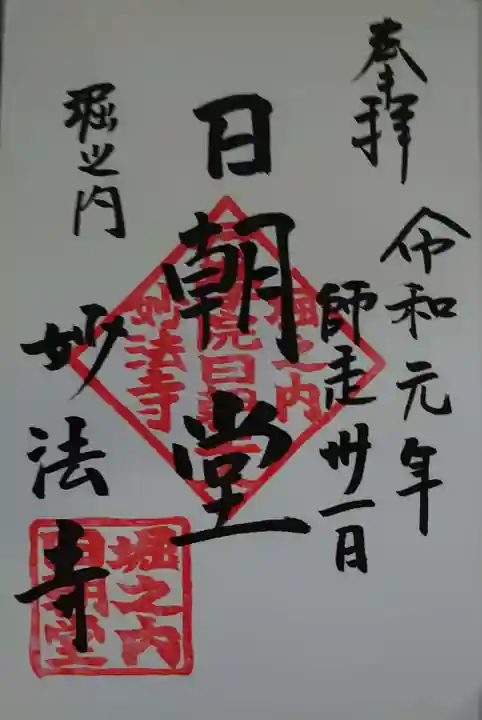 奉拝
令和元年
師走卅一日
日朝堂
堀之内
妙法寺
堀之内
妙法寺
堀之内
日朝堂